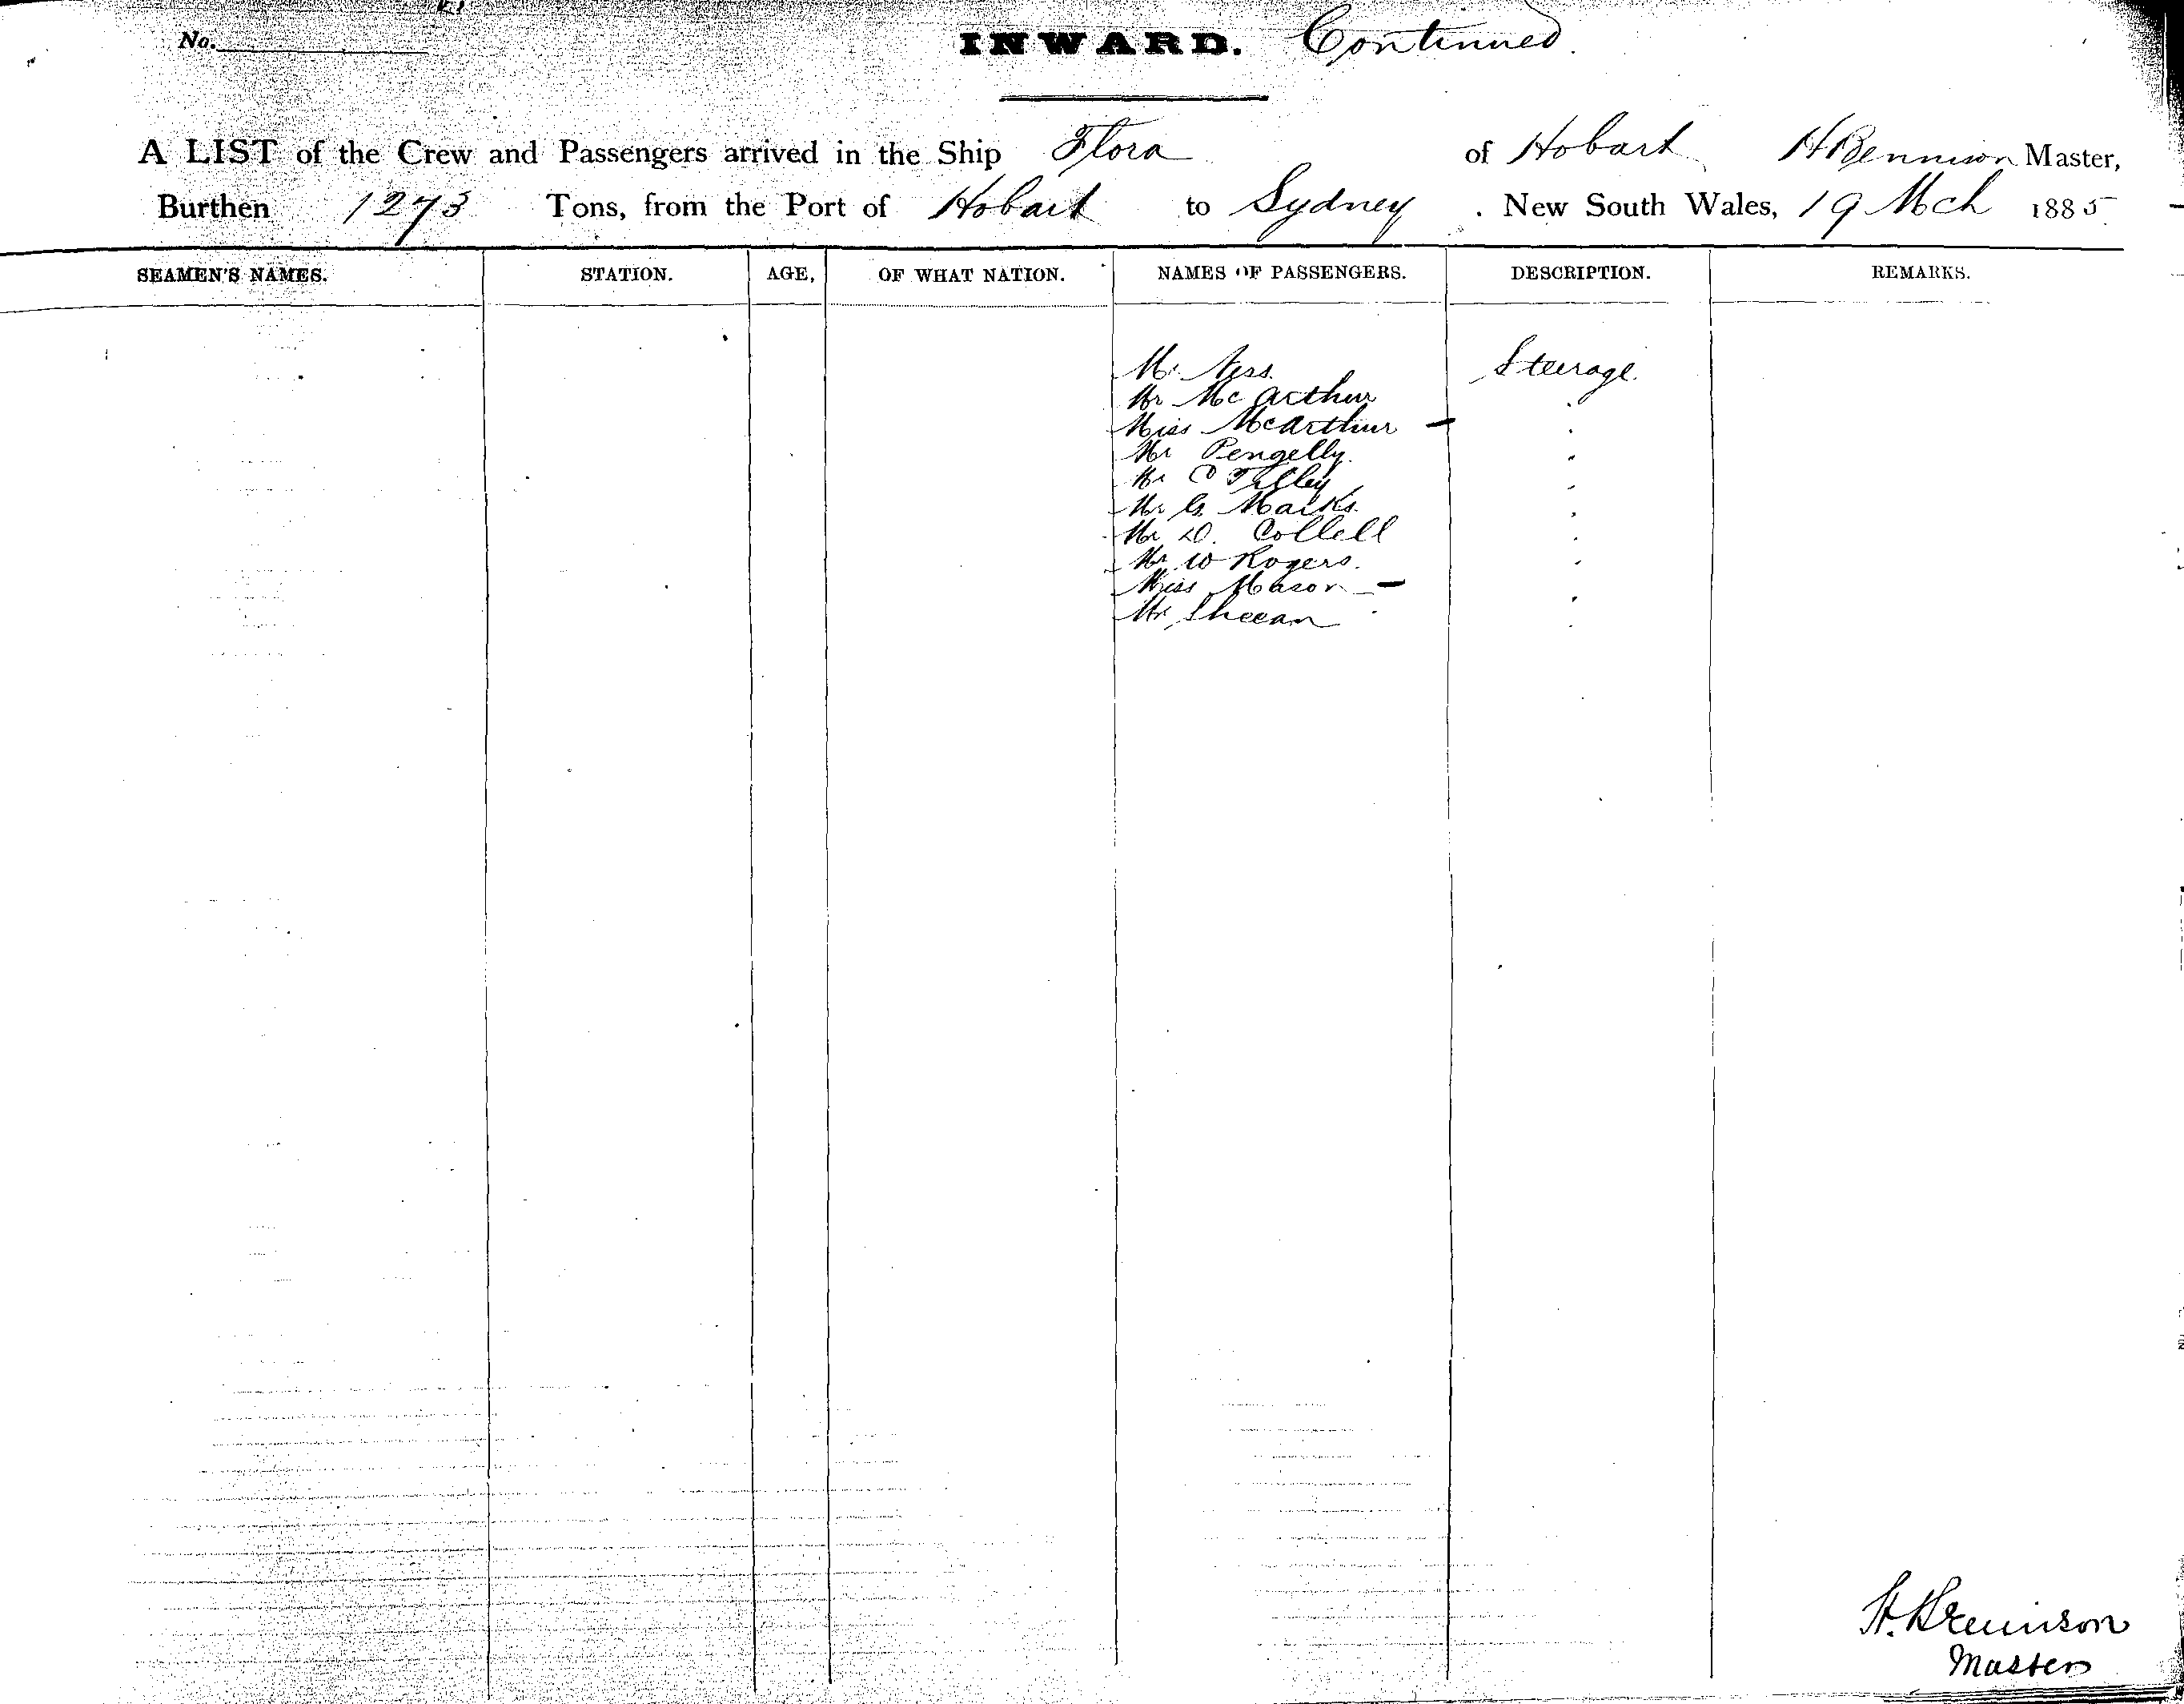 No.
INWARD. Continued.
A LIST of the Crew and Passengers arrived in the Ship Flora of Hobart H Bennison Master,
Burthen 1273 Tons, from the Port of Hobart to Sydney . New South Wales, 19 Mch 1885
SEAMEN'S NAMES. STATION. AGE, OF WHAT NATION. NAMES OF PASSENGERS. DESCRIPTION. REMARKS.
Mr Ness. Steerage.
Mr McArthur
Miss McArthur -
Mr Pengelly.
Mr C Tilley
Mr G. Marks.
Mr D. Collell
Mr W Rogers.
Miss Mason -
Mr Sheean
H. Bennison
Master